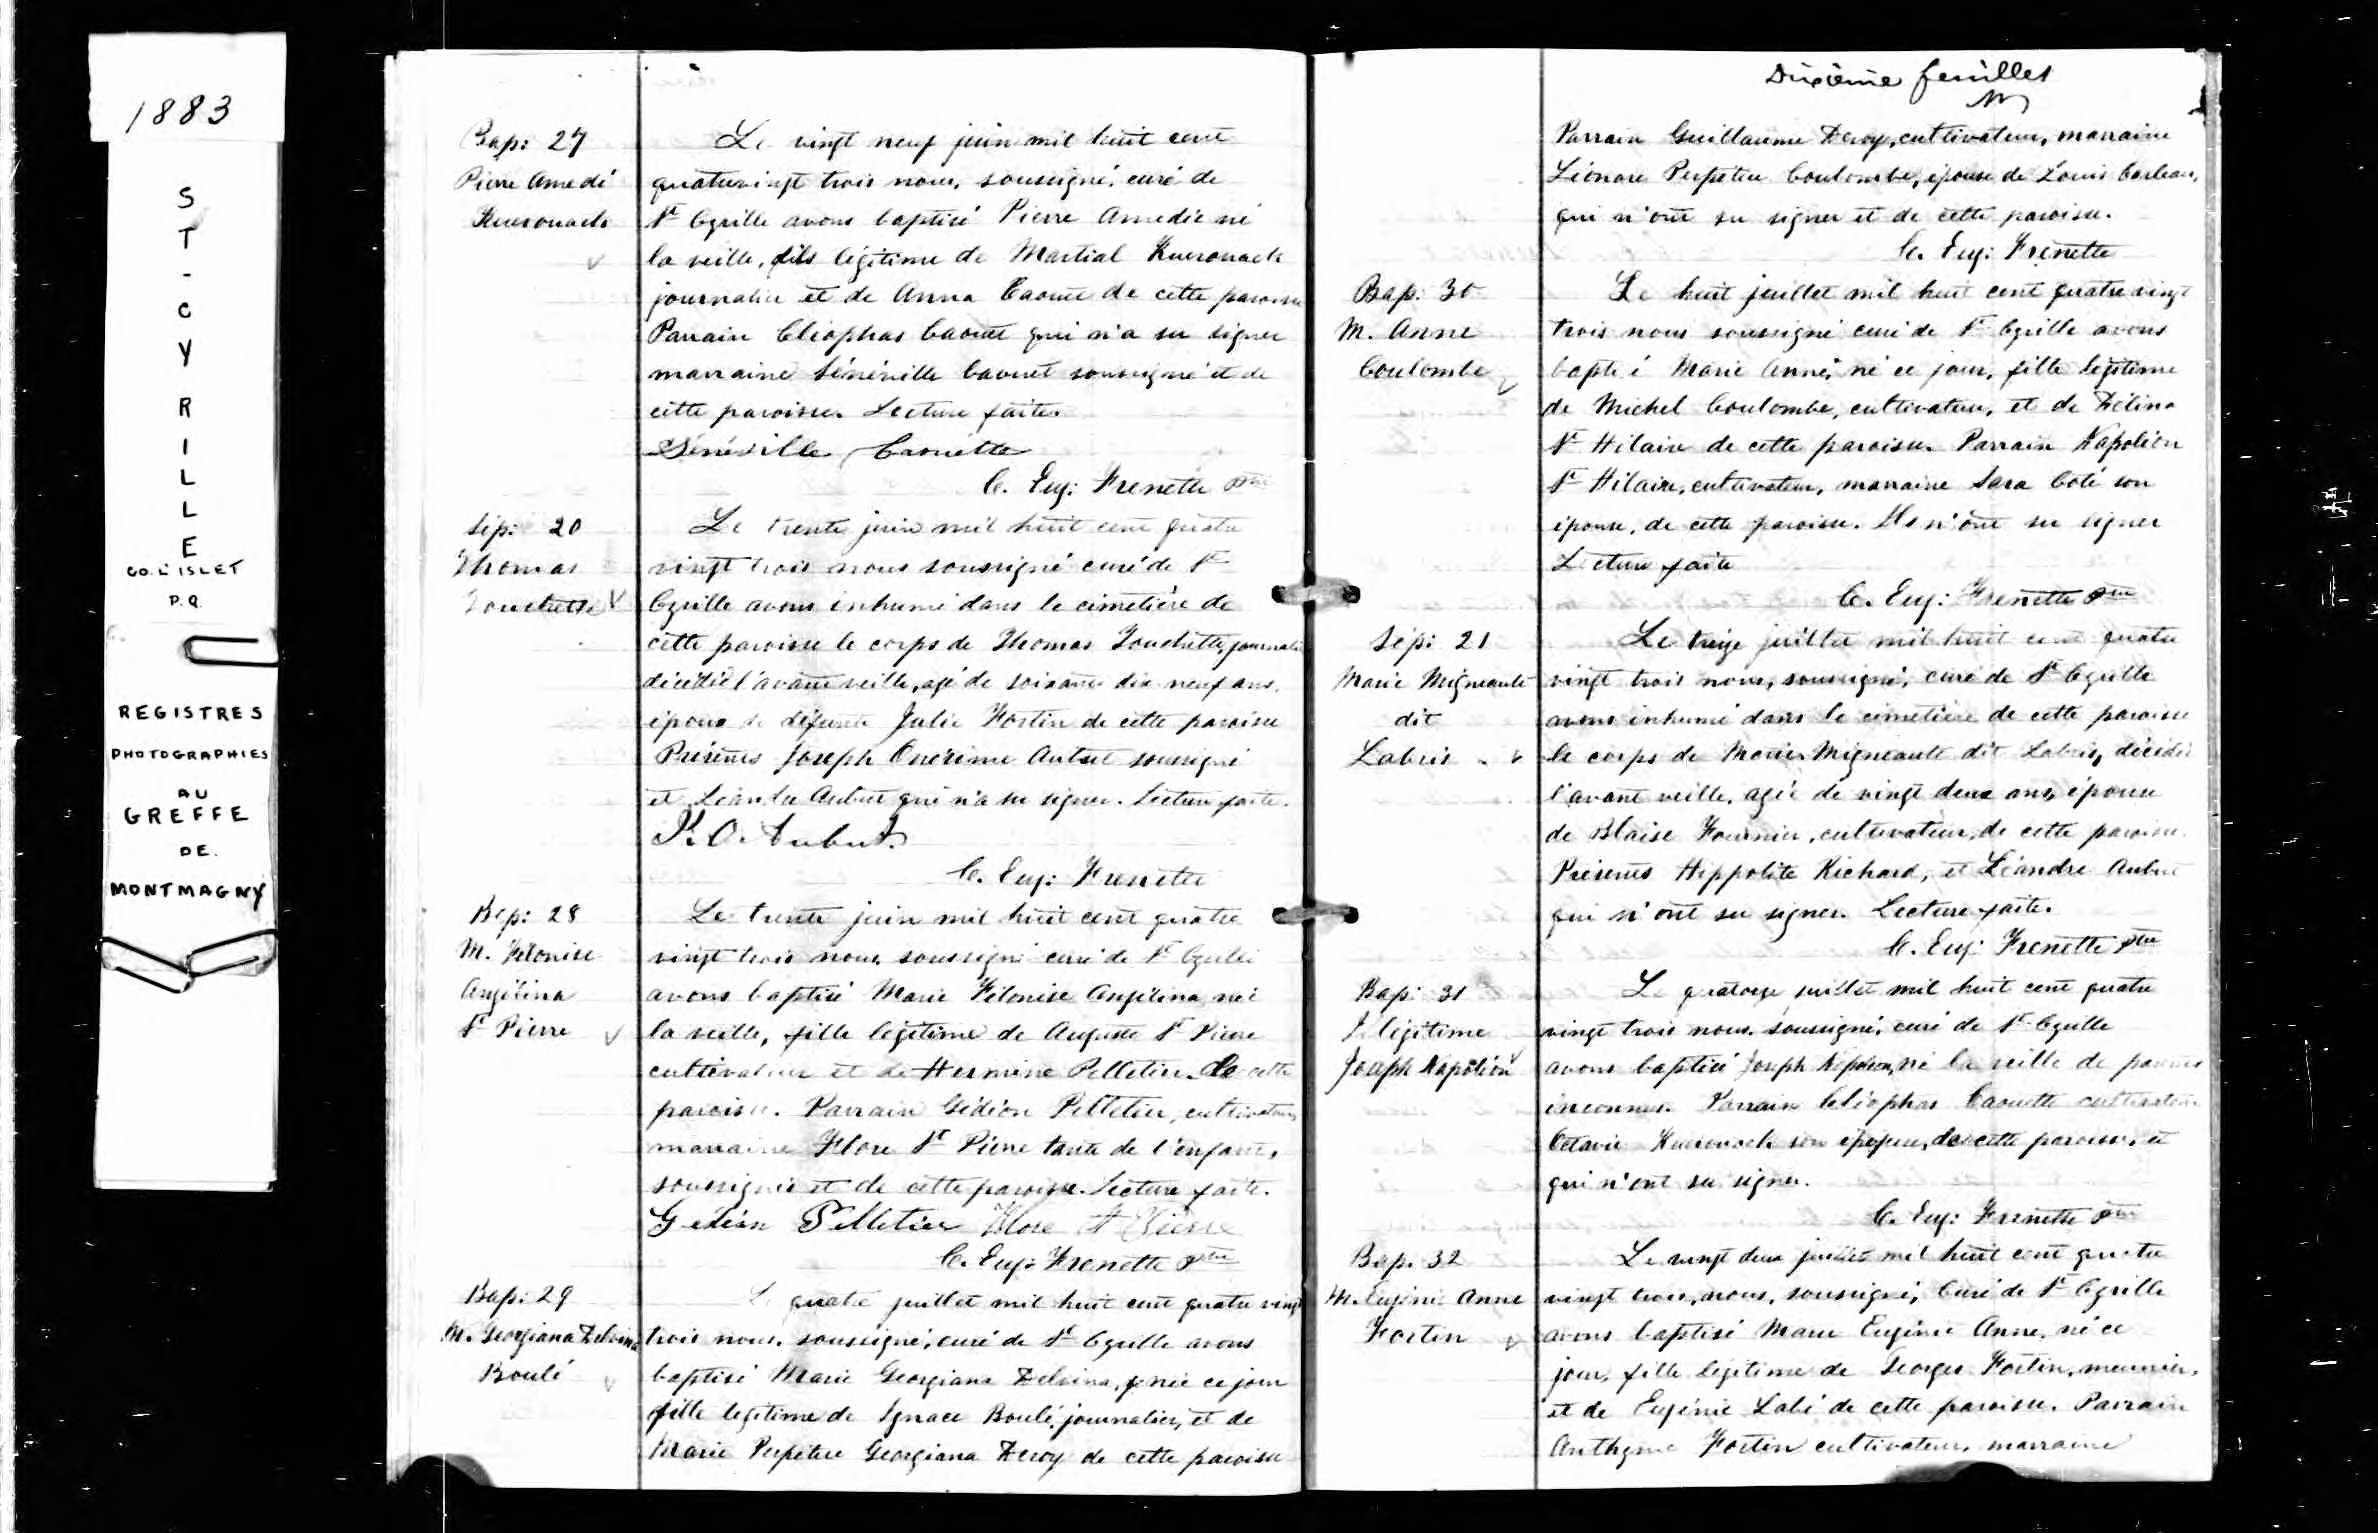 1883
S
T
-
C
Y
R
I
L
L
E
CO. L'ISLET
P.Q.
REGISTRES
PHOTOGRAPHIES
AU
GREFFE
DE
MONTMAGNY
Bap: 27
Pierre Amedé
Kuerouack
Le vingt neuf juin mil huit cent
quatrevingt trois nous, soussigné, curé de
St Cyrille avons baptisé Pierre Amedée né
la veille, fils légitime de Martial Kuerouack
journalier et de Anna Caouet de cette paroisse
Parrain Cléophas Caouet qui n'a su signer
marraine Sénéville Caouet soussigné et de
cette paroisse. Lecture faite.
Sénéville Caouette
C. Eug: Frenette ptre
Sép: 20
Thomas
Touchette
Le trente juin mil huit cent quatre
vingt trois nous soussigné curé de St
Cyrille avons inhumé dans le cimetière de
cette paroisse le corps de Thomas Touchette, journalier
décédé l'avant veille, agé de soixante dix neuf ans,
époux de défunte Julie Fortin de cette paroisse
Présents Joseph Onésime Aubut soussigné
et Léandre Aubut qui n'a su signer. Lecture faite.
J. O. Aubut
C. Eug: Frenette
Bap: 28
M. Félonise
Angélina
St Pierre
Le trente juin mil huit cent quatre
vingt trois nous soussigné curé de St Cyrille
avons baptisé Marie Félonise Angélina née
la veille, fille légitime de Auguste St Pierre
cultivateur et de Hermine Pelletier de cette
paroisse. Parrain Gédéon Pelletier, cultivateur,
marraine Flore St Pierre tante de l'enfant,
soussignés et de cette paroisse. Lecture faite.
Gédéon Pelletier Flore St Pierre
C. Eug: Frenette ptre
Bap: 29
M. Georgiana Delvina
Boulé
Le quatre juillet mil huit cent quatre vingt
trois nous, soussigné, curé de St Cyrille avons
baptisé Marie Georgiana Delvina, née ce jour
fille légitime de Ignace Boulé, journalier, et de
Marie Perpétue Georgiana Deroy de cette paroisse
Dixième feuillet
Parrain Guillaume Deroy, cultivateur, marraine
Léonore Perpétue Coulombe, épouse de Louis
qui n'ont su signer et de cette paroisse.
C. Eug: Frenette
Bap: 30
M. Anne
Coulombe
Le huit juillet mil huit cent quatre vingt
trois nous soussigné curé de St Cyrille avons
Marie Anne, né ce jour, fille légitime
de Michel Coulombe, cultivateur, et de Délina
St Hilaire de cette paroisse. Parrain Napoléon
St Hilaire, cultivateur, marraine Sara Coté son
épouse, de cette paroisse. Ils n'ont su signer
Lecture faite
C. Eug: Frenette ptre
Sép: 21
Marie Migneault
dit
Labris
Le treize juillet mil huit cent quatre
vingt trois nous, soussigné, curé de St Cyrille
avons inhumé dans le cimetière de cette paroisse
le corps de Marie Migneault dit Labris, décédée
l'avant veille, agée de vingt deux ans, épouse
de Blaise Fournier, cultivateur, de cette paroisse.
Présents Hippolite Richard, et Léandre Aubut
qui n'ont su signer. Lecture faite.
C. Eug: Frenette ptre
Bap: 31
Illégitime
Joseph Napoléon
Le quatorze juillet mil huit cent quatre
vingt trois nous, soussigné, curé de St Cyrille
avons baptisé Joseph Napoléon, né la veille de parents
inconnus. Parrain Cléophas Caouette cultivateur
Octavie Kuerouack son épouse, de cette paroisse, et
qui n'ont su signer.
C. Eug: Frenette ptre
Bap: 32
M. Eugénie Anne
Fortin
Le vingt deux juillet mil huit cent quatre
vingt trois, nous, soussigné, Curé de St Cyrille
avons baptisé Marie Eugénie Anne, né ce
jour, fille légitime de Georges Fortin, meunier,
et de Eugénie Labé de cette paroisse. Parrain
Anthyme Fortin cultivateur, marraine